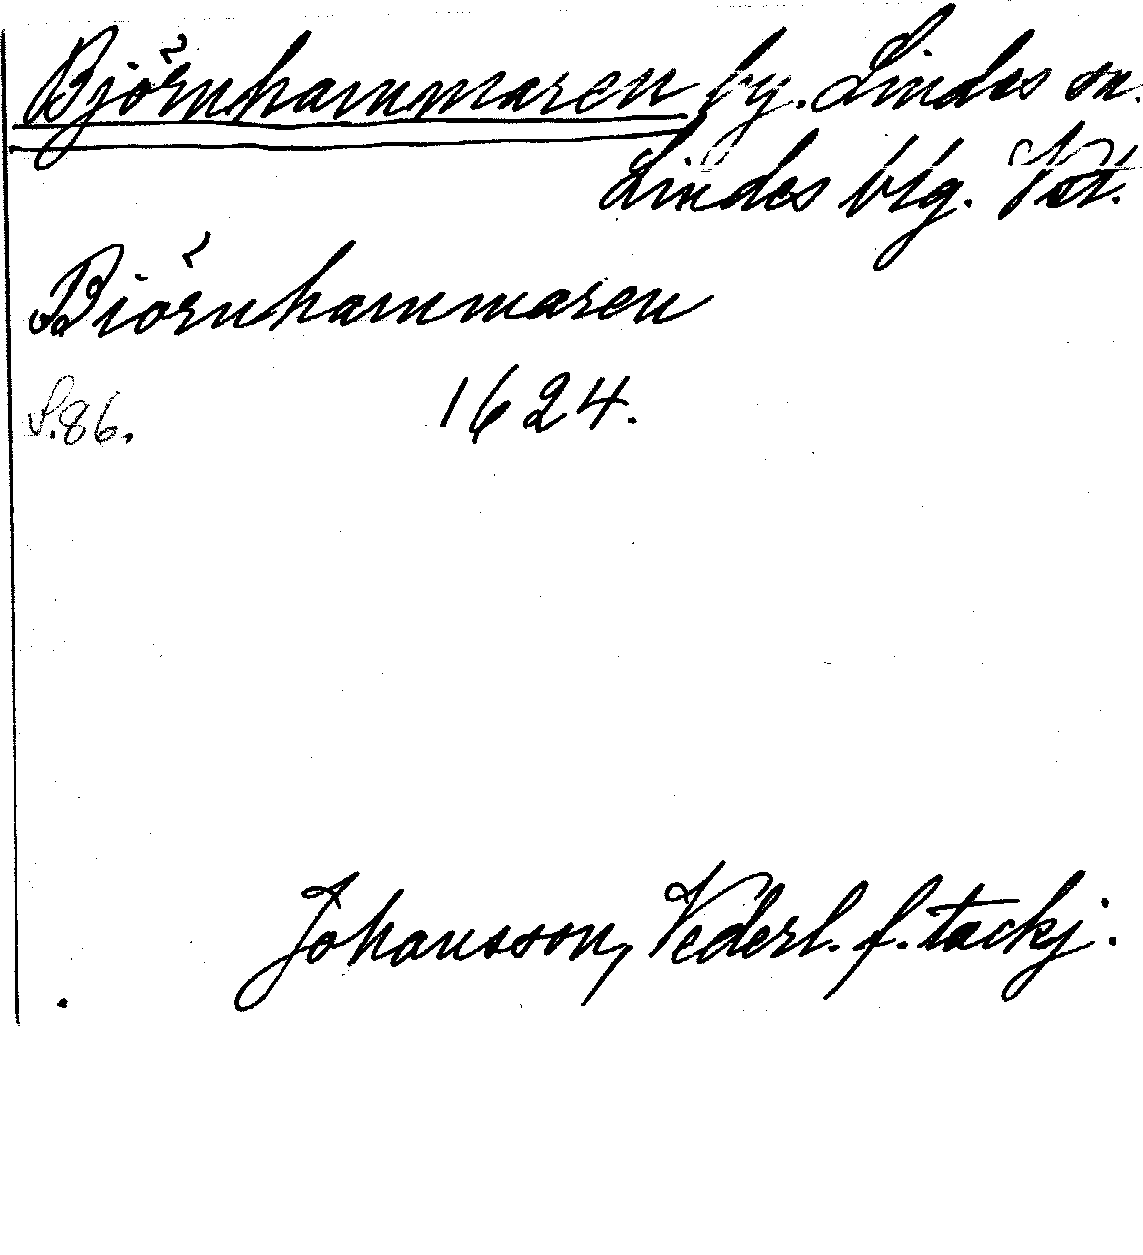 Björnhammaren by. Lindes sn.
Lindes blg. Vst.
Biörnhammaren
S. 86. 1624.
Johansson, Vederl. f. tackj.